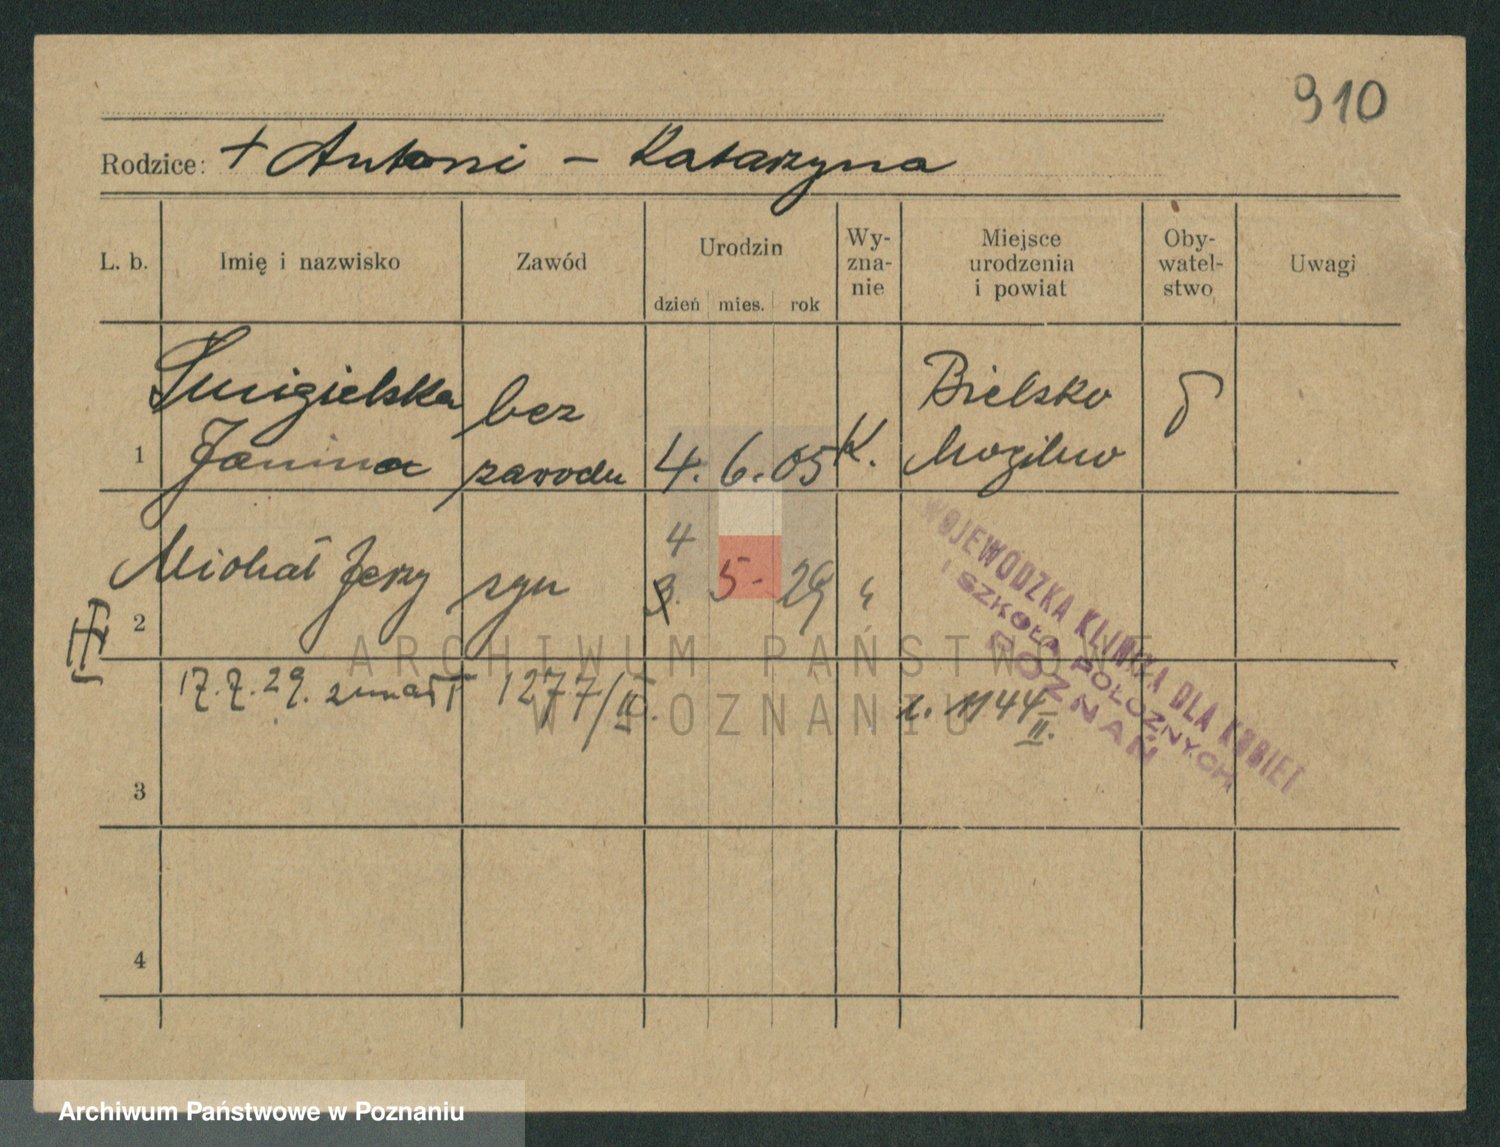 910
Rodzice: + Antoni – Katarzyna
L. b. Imię i nazwisko Zawód Urodzin dzień mies. rok Wy-zna-nie Miejsce urodzenia i powiat Oby-watel-stwo Uwagi
Śmigielska bez Bielsko
1 Janina zawodu 4. 6. 05 K. Mogilno
4
2 Michał Jerzy syn 3. 5- 29 "
17.7.29. zmarł 1277/II. 1144/II.
3
4
WOJEWÓDZKA KLINIKA DLA KOBIET
I SZKOŁA POŁOŻNYCH
POZNAŃ
ARCHIWUM PAŃSTWOWE
W POZNANIU
Archiwum Państwowe w Poznaniu